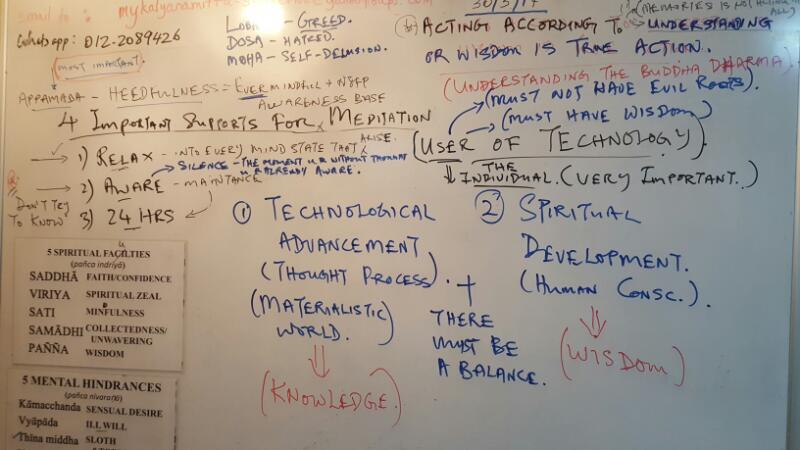 email to:
Whatsapp: 012-2089426
MOST IMPORTANT.
LOBHA - GREED.
DOSA - HATRED.
MOHA - SELF-DELUSION.
APPAMADA - HEEDFULNESS = EVER MINDFUL +
AWARENESS BASE
4 IMPORTANT SUPPORTS FOR MEDITATION
1) RELAX - INTO EVERY MIND STATE THAT ARISE.
SILENCE - THE MOMENT U R WITHOUT THOUGHT
U R ALREADY AWARE.
2) AWARE - MAINTANCE
DON'T TRY
TO KNOW
3) 24 HRS
5 SPIRITUAL FACILTIES
u
(pañca indriyā)
SADDHĀ FAITH/CONFIDENCE
VIRIYA SPIRITUAL ZEAL
SATI MINFULNESS
SAMĀDHI COLLECTEDNESS/
UNWAVERING
PAÑÑA WISDOM
5 MENTAL HINDRANCES
Kāmacchanda SENSUAL DESIRE
Vyāpāda ILL WILL
Thina middha SLOTH
30/3/17
(MEMORIES IS NOT
ACTING ACCORDING TO UNDERSTANDING
OR WISDOM IS TRUE ACTION.
(UNDERSTANDING THE BUDDHA DHARMA)
(MUST NOT HAVE EVIL ROOTS).
(MUST HAVE WISDOM)
(USER OF TECHNOLOGY).
THE
INDIVIDUAL. (VERY IMPORTANT..)
① TECHNOLOGICAL
ADVANCEMENT
(THOUGHT PROCESS).
(MATERIALISTIC)
WORLD.
(KNOWLEDGE.)
+
THERE
MUST BE
A BALANCE.
② SPIRITUAL
DEVELOPMENT.
(HUMAN CONSC.).
(WISDOM)